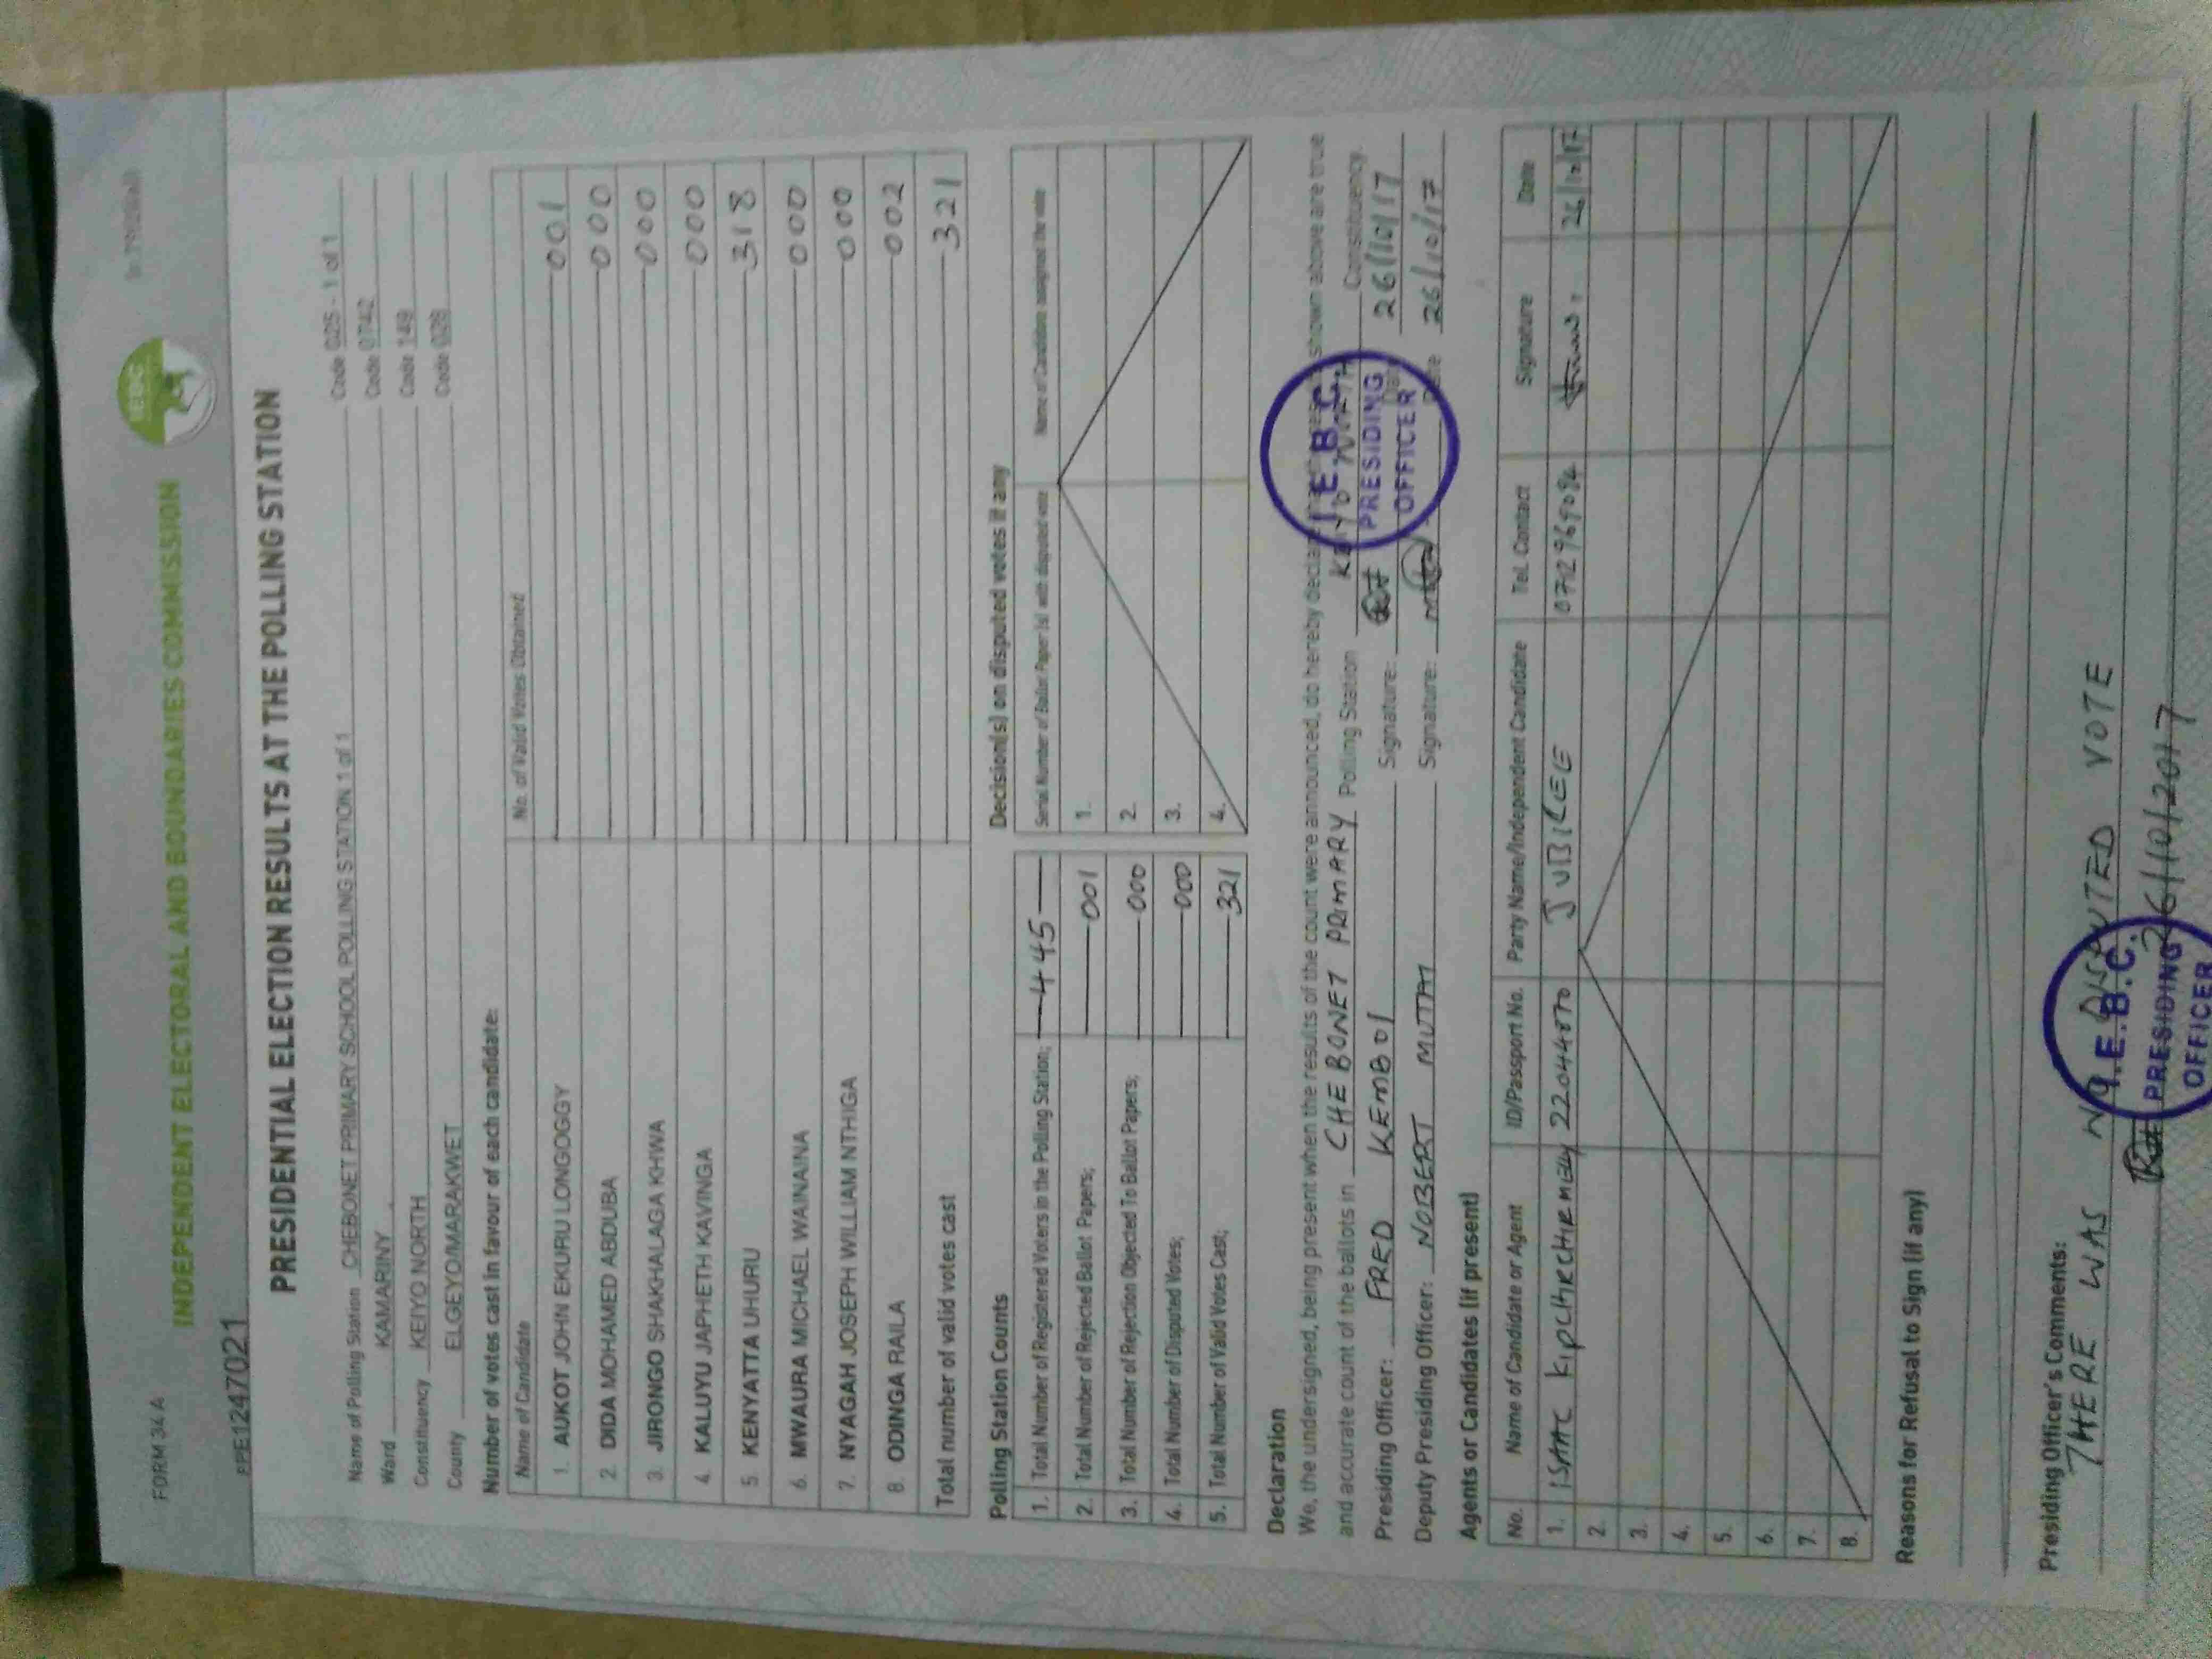 FORM 34 A
INDEPENDENT ELECTORAL AND BOUNDARIES COMMISSION
IEBC
PPE1247021
PRESIDENTIAL ELECTION RESULTS AT THE POLLING STATION
Name of Polling Station CHEBONET PRIMARY SCHOOL POLLING STATION 1 of 1 Code 025 - 1 of 1
Ward KAMARINY Code 0742
Constituency KEIYO NORTH Code 149
County ELGEYO/MARAKWET Code 028
Number of votes cast in favour of each candidate:
Name of Candidate No. of Valid Votes Obtained
1. AUKOT JOHN EKURU LONGOGGY 001
2. DIDA MOHAMED ABDUBA 000
3. JIRONGO SHAKHALAGA KHWA 000
4. KALUYU JAPHETH KAVINGA 000
5 KENYATTA UHURU 318
6. MWAURA MICHAEL WAINAINA 000
7. NYAGAH JOSEPH WILLIAM NTHIGA 000
8. ODINGA RAILA 002
Total number of valid votes cast 321
Polling Station Counts
1. Total Number of Registered Voters in the Polling Station; 445
2. Total Number of Rejected Ballot Papers; 001
3. Total Number of Rejection Objected To Ballot Papers; 000
4. Total Number of Disputed Votes; 000
5. Total Number of Valid Votes Cast; 321
Decision(s) on disputed votes if any
Serial Number of Ballot Paper (s) with disputed vote Name of Candidate assigned the vote
1.
2.
3.
4.
Declaration
We, the undersigned, being present when the results of the count were announced, do hereby declare shown above are true
and accurate count of the ballots in CHEBONET PRIMARY Polling Station KEIYO NORTH Constituency.
Presiding Officer: FRED KEMBOI Signature: 26/10/17
Deputy Presiding Officer: NOBERT MUTAI Signature: Date 26/10/17
I.E.B.C.
PRESIDING
OFFICER
Agents or Candidates (if present)
No. Name of Candidate or Agent ID/Passport No. Party Name/Independent Candidate Tel. Contact Signature Date
1. ISAAC 22044070 JUBILEE 26/10/17
2.
3.
4.
5.
6.
7.
8.
Reasons for Refusal to Sign (if any)
Presiding Officer's Comments:
THERE WAS NO DISPUTED VOTE
26/10/2017
I.E.B.C.
PRESIDING
OFFICER